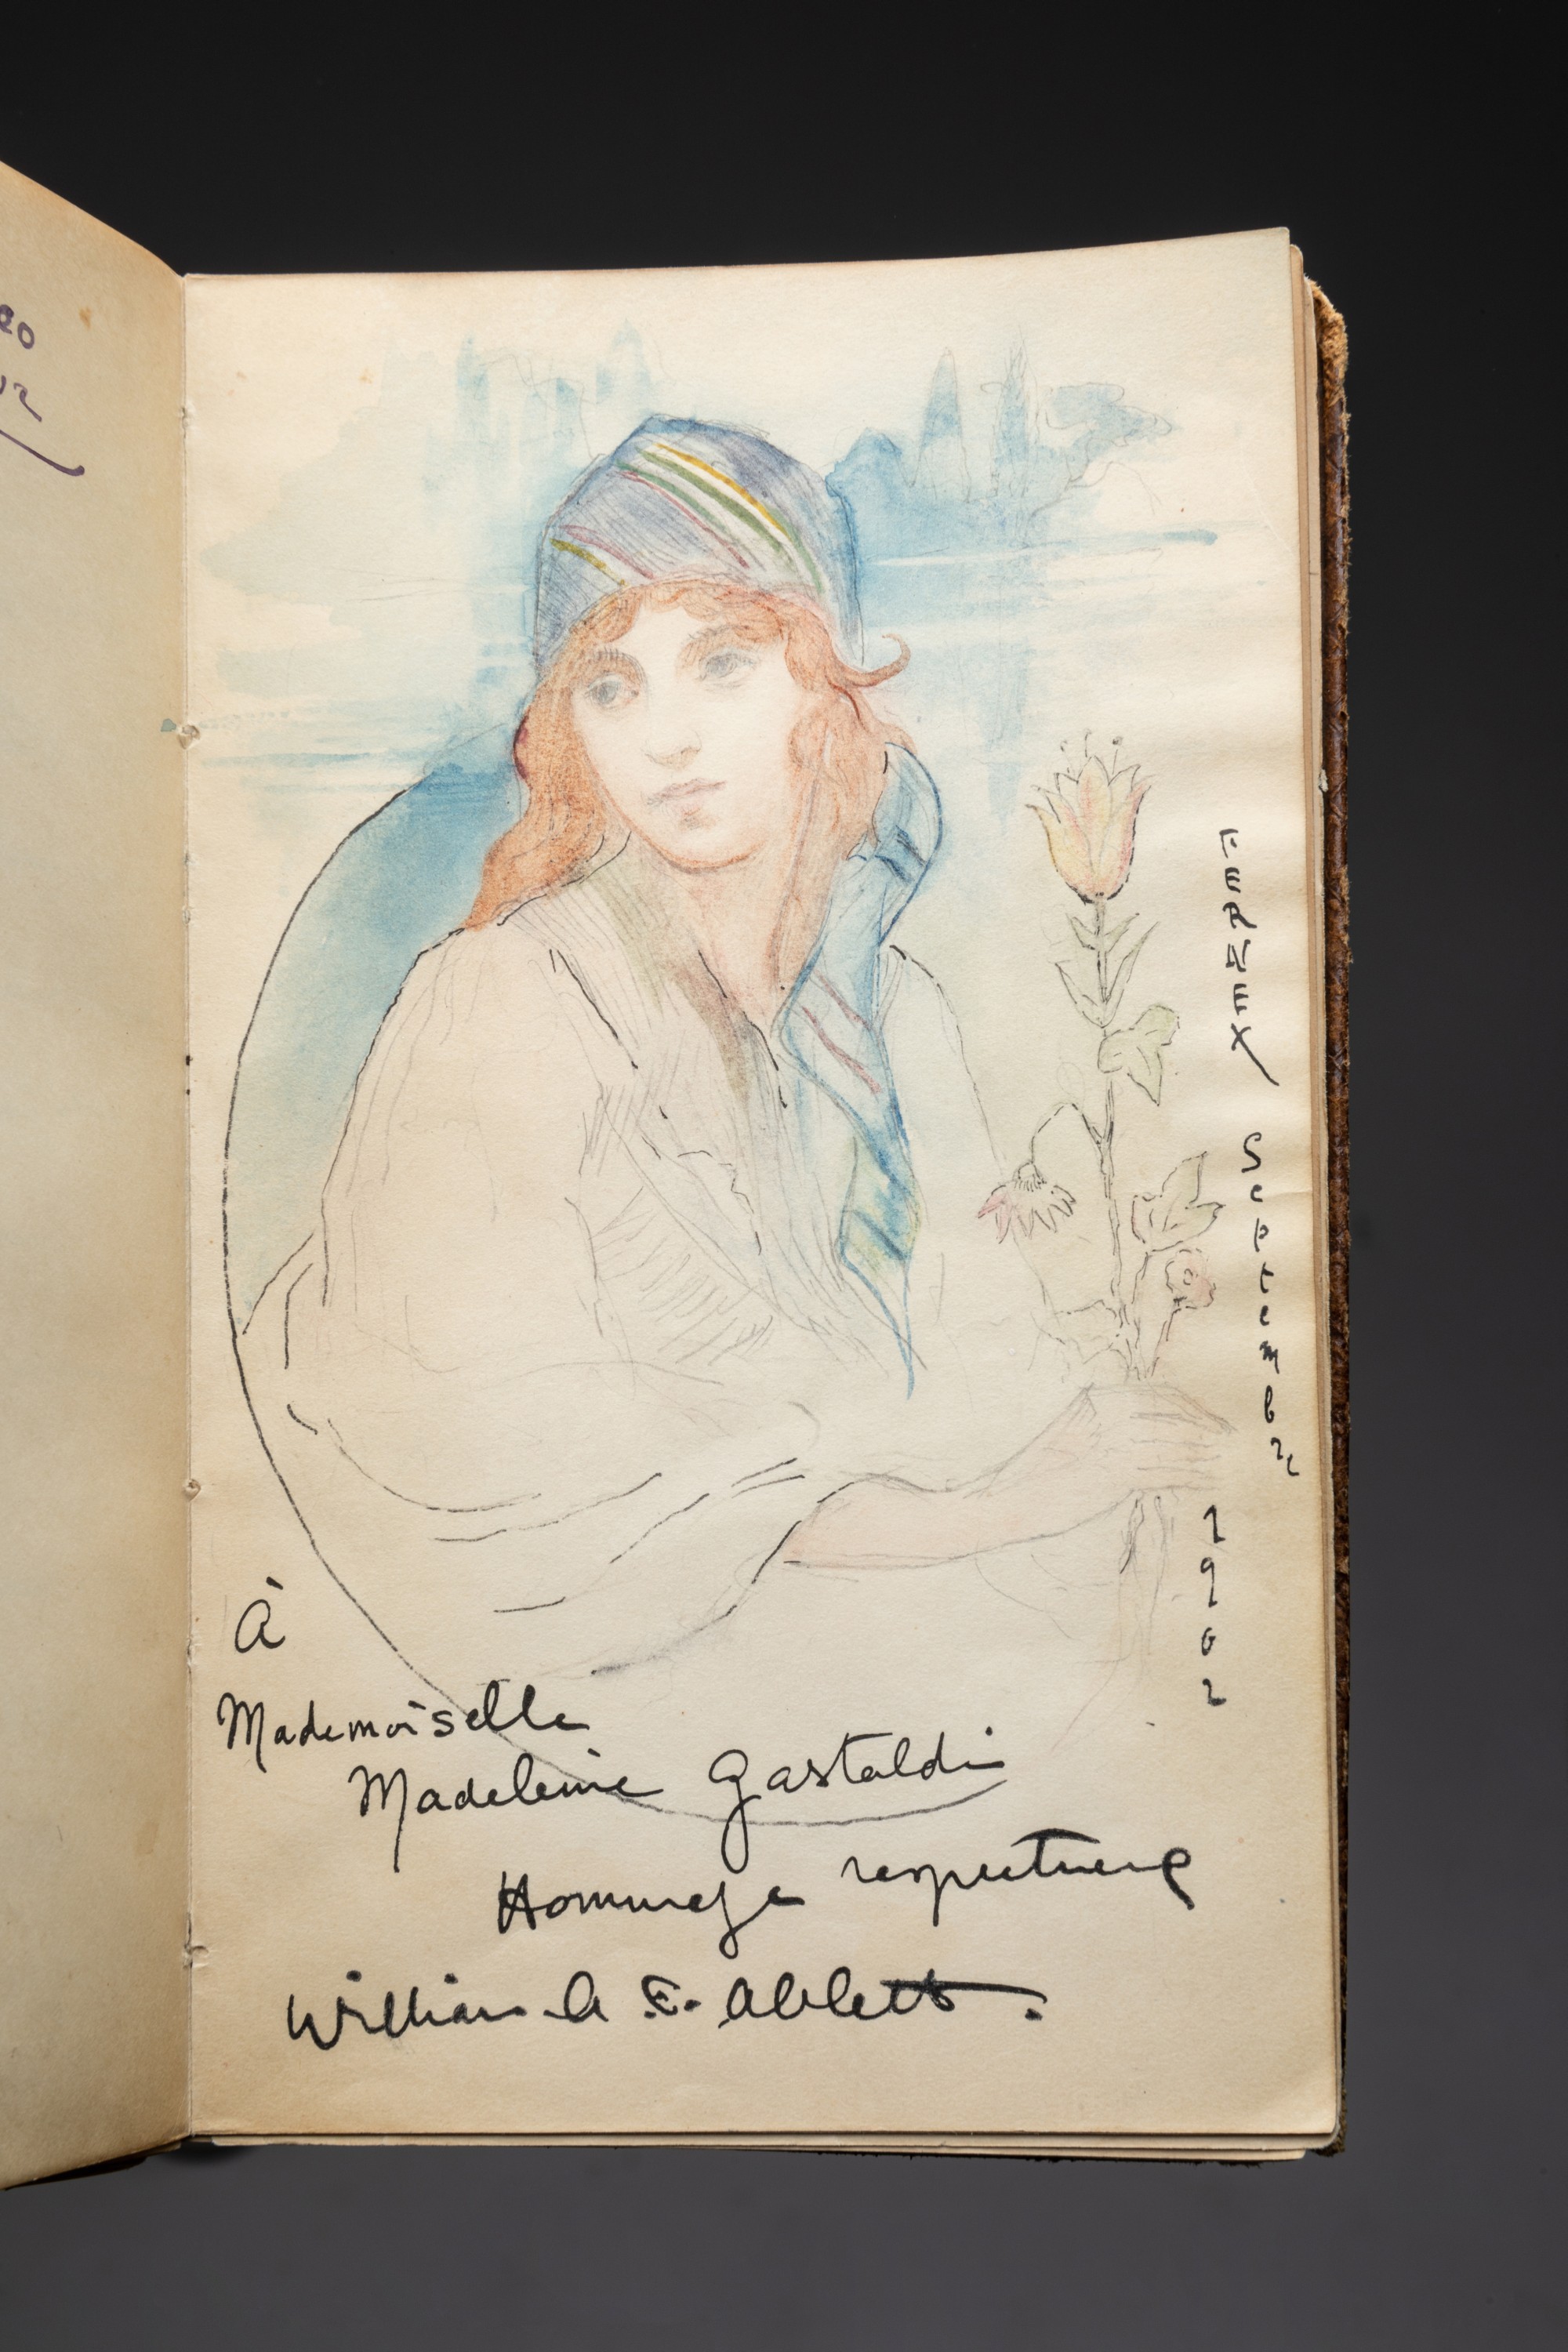 FERNEX
Septembre
1902
À
Mademoiselle
Madeleine Gastaldi
Hommage respectueux
William A. E. Ablett.